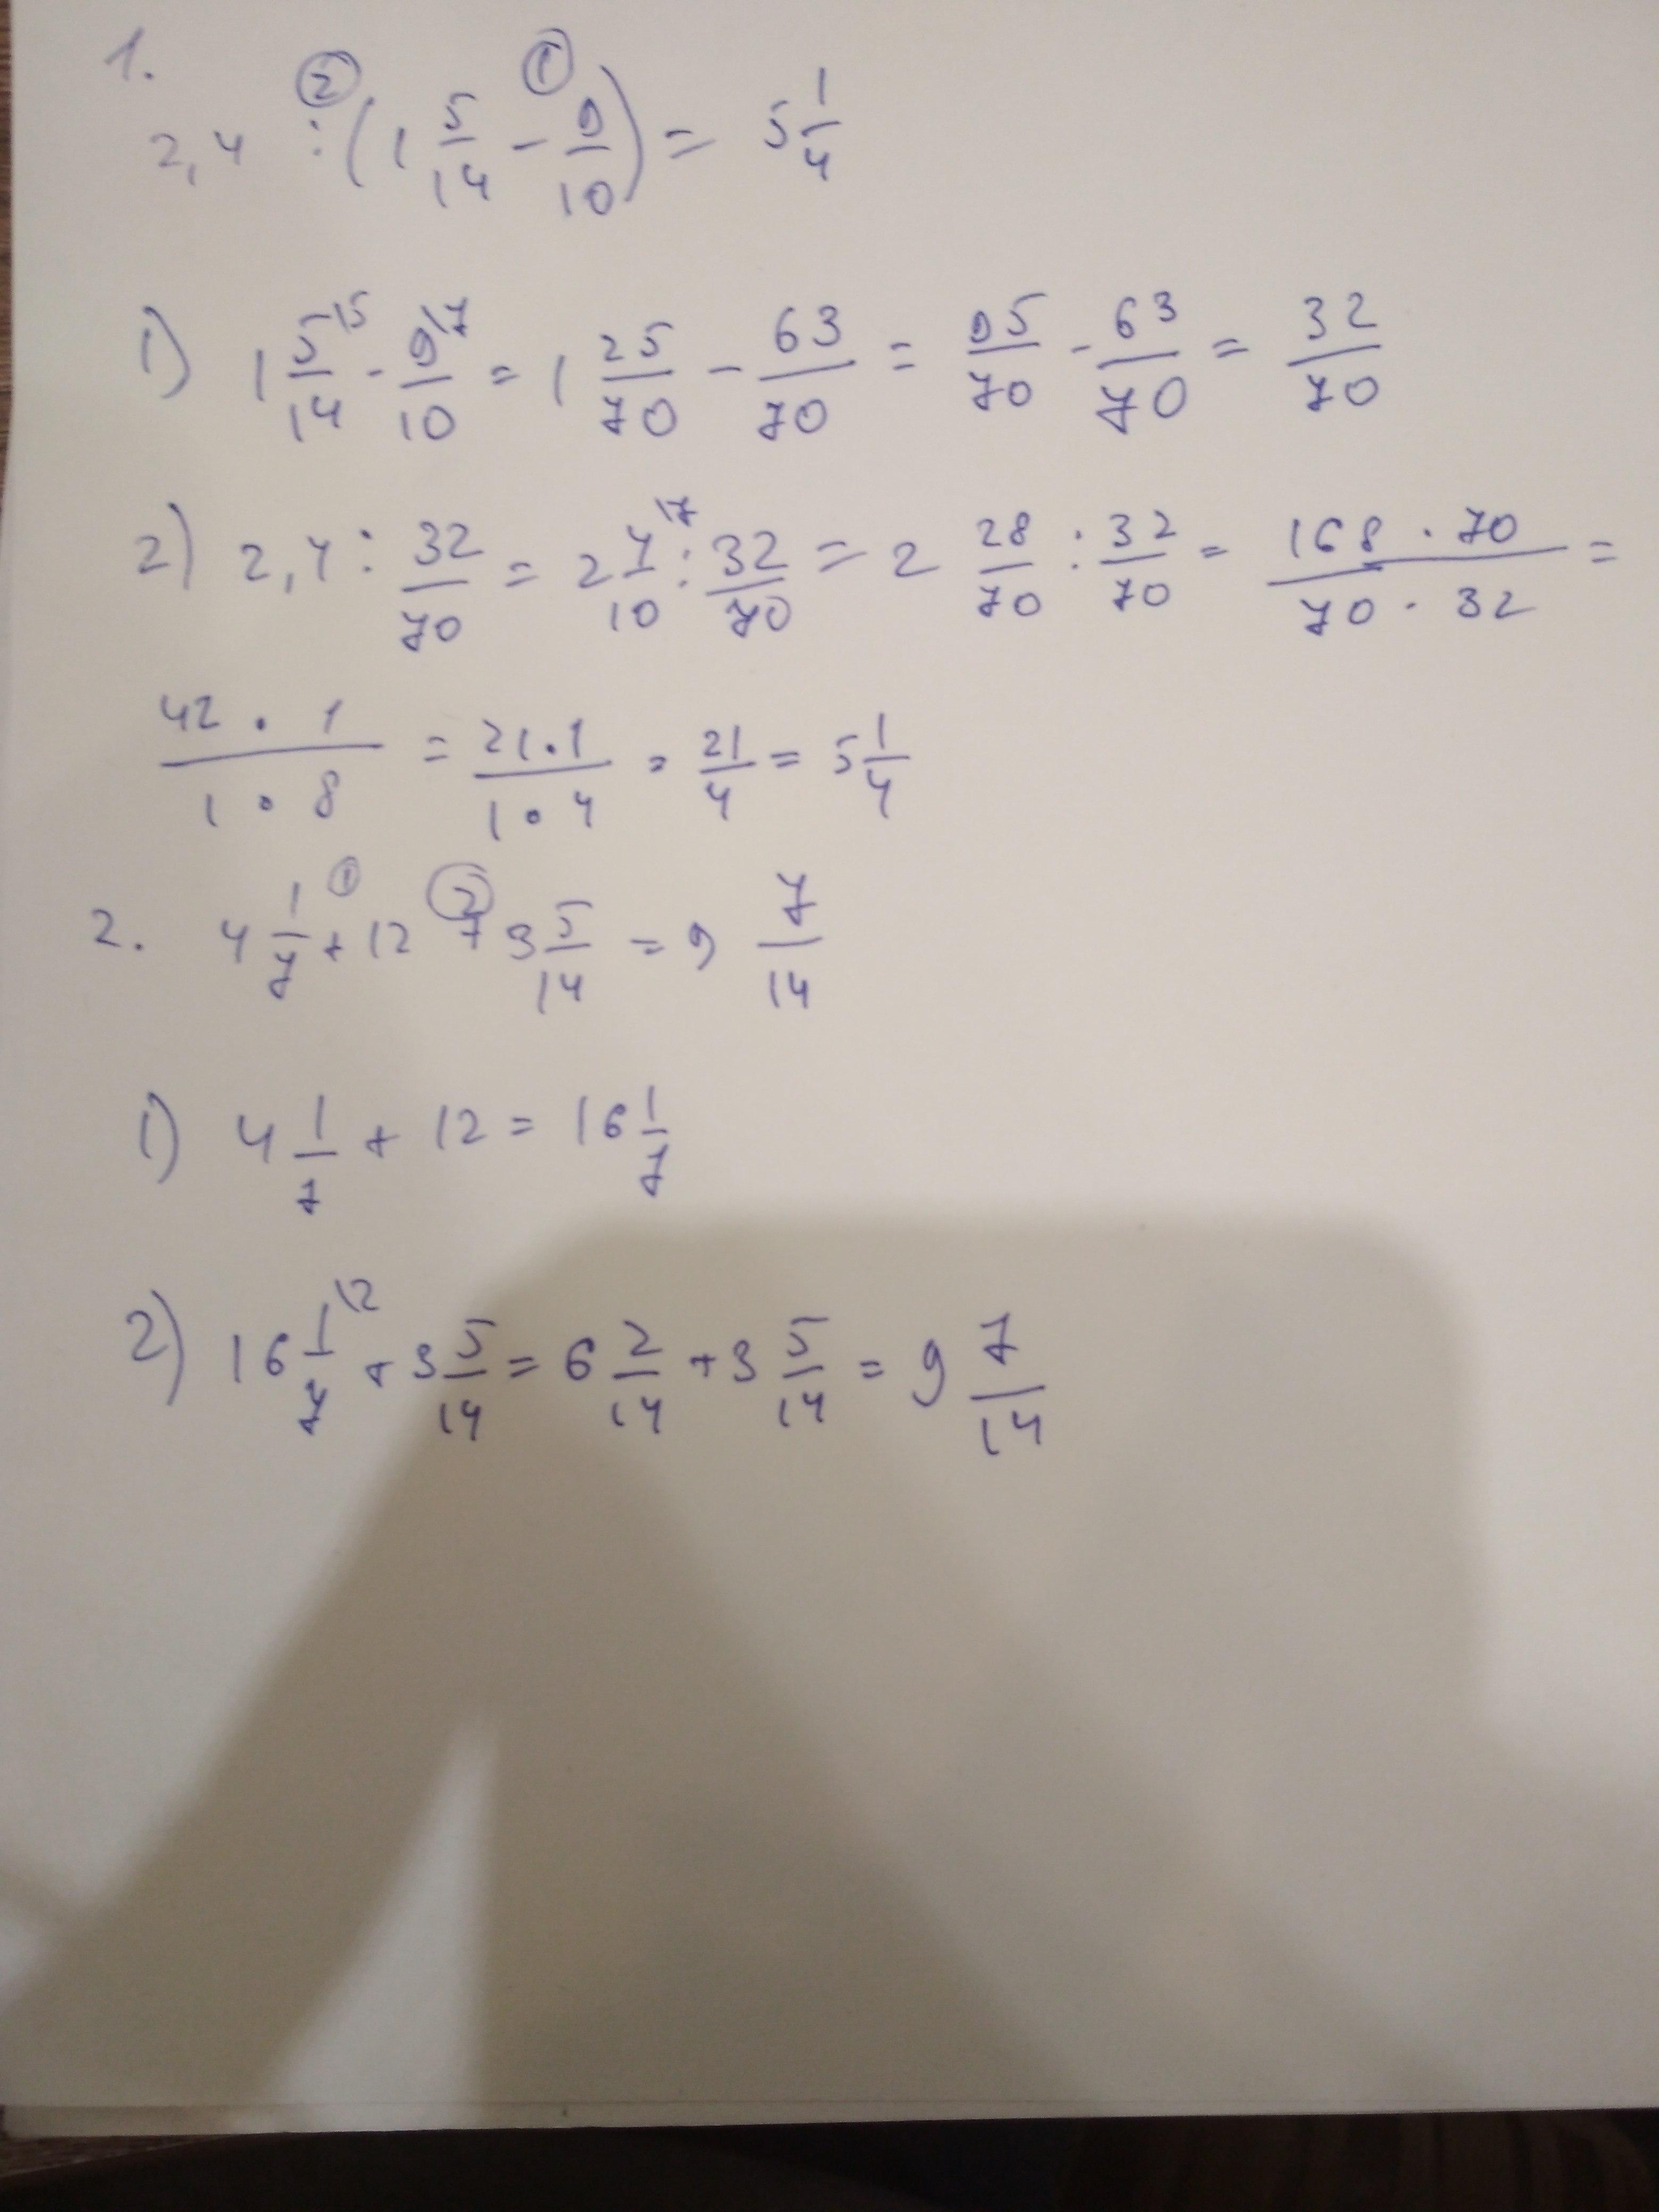 1.
② ①
2,4 : (1 5/14 - 9/10) = 5 1/4
1) 1 5/14 \5 - 9/10 \7 = 1 25/70 - 63/70 = 95/70 - 63/70 = 32/70
2) 2,4 : 32/70 = 2 4/10 \7 : 32/70 = 2 28/70 : 32/70 = 168 · 70/70 · 32 =
42 · 1/1 · 8 = 21 · 1/1 · 4 = 21/4 = 5 1/4
① ②
2. 4 1/7 + 12 + 3 5/14 = 9 7/14
1) 4 1/7 + 12 = 16 1/7
2) 16 1/7 \2 + 3 5/14 = 6 2/14 + 3 5/14 = 9 7/14